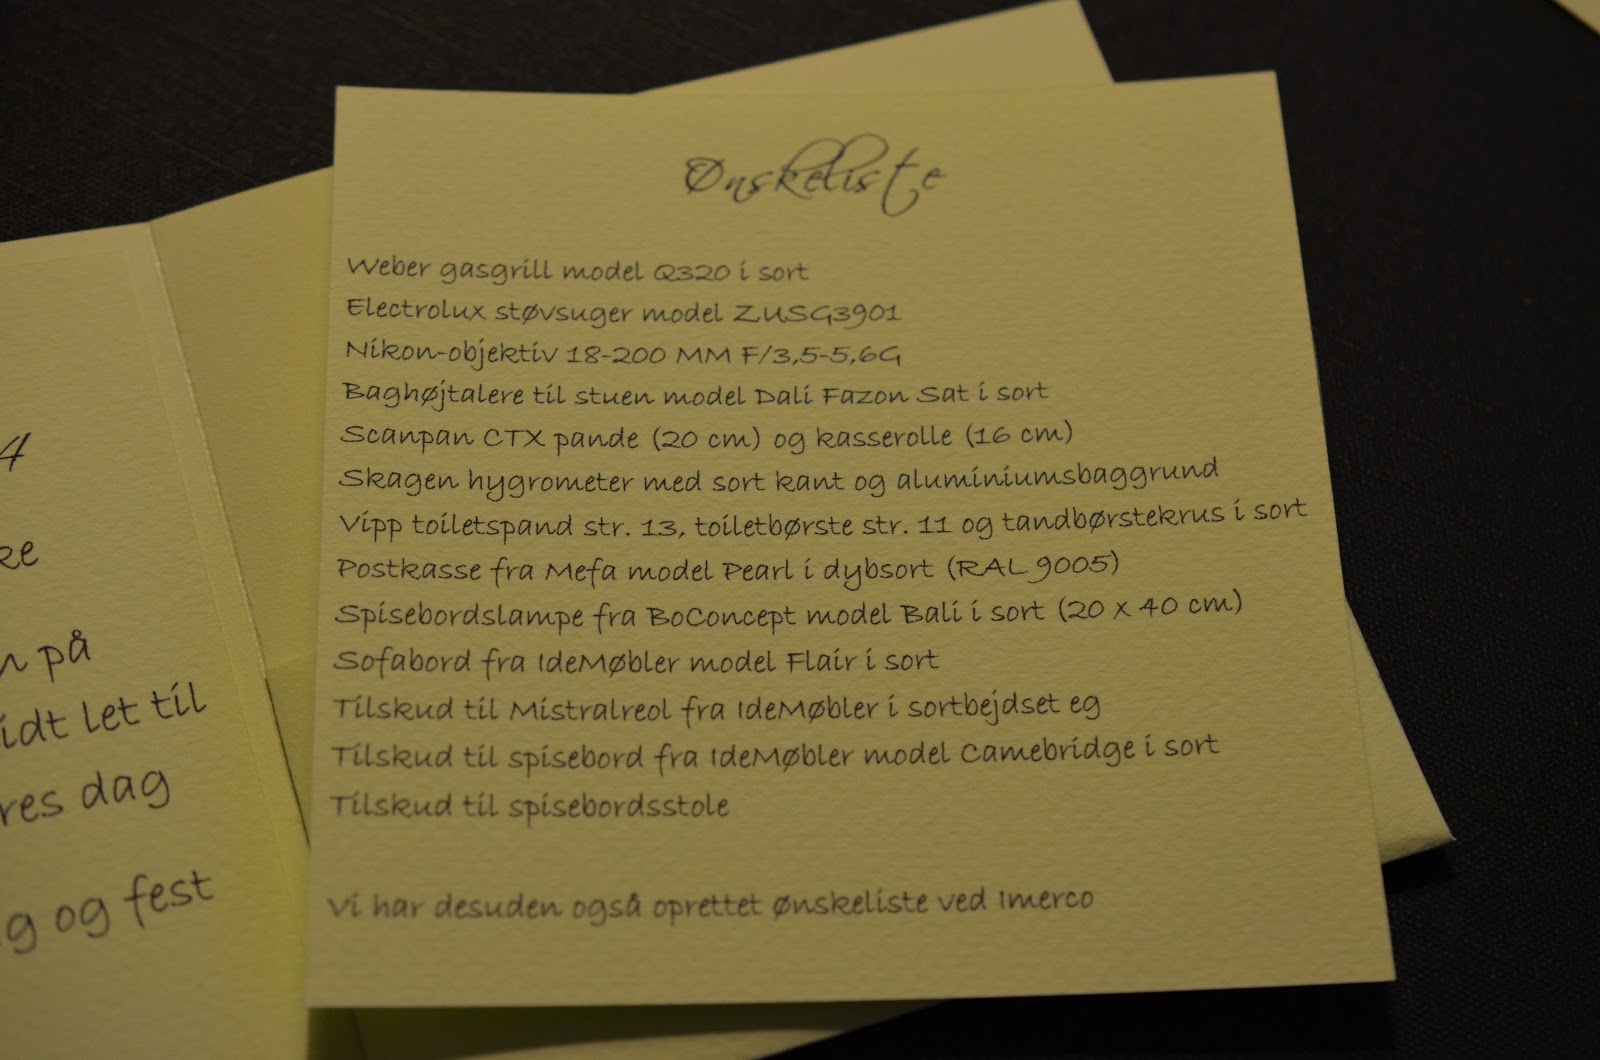 Ønskeliste
Weber gasgrill model Q320 i sort
Electrolux støvsuger model ZUSG3901
Nikon-objektiv 18-200 MM F/3,5-5,6G
Baghøjtalere til stuen model Dali Fazon Sat i sort
Scanpan CTX pande (20 cm) og kasserolle (16 cm)
Skagen hygrometer med sort kant og aluminiumsbaggrund
Vipp toiletspand str. 13, toiletbørste str. 11 og tandbørstekrus i sort
Postkasse fra Mefa model Pearl i dybsort (RAL 9005)
Spisebordslampe fra BoConcept model Bali i sort (20 x 40 cm)
Sofabord fra IdeMøbler model Flair i sort
Tilskud til Mistralreol fra IdeMøbler i sortbejdset eg
Tilskud til spisebord fra IdeMøbler model Camebridge i sort
Tilskud til spisebordsstole
Vi har desuden også oprettet ønskeliste ved Imerco
4
på
let til
dag
og fest